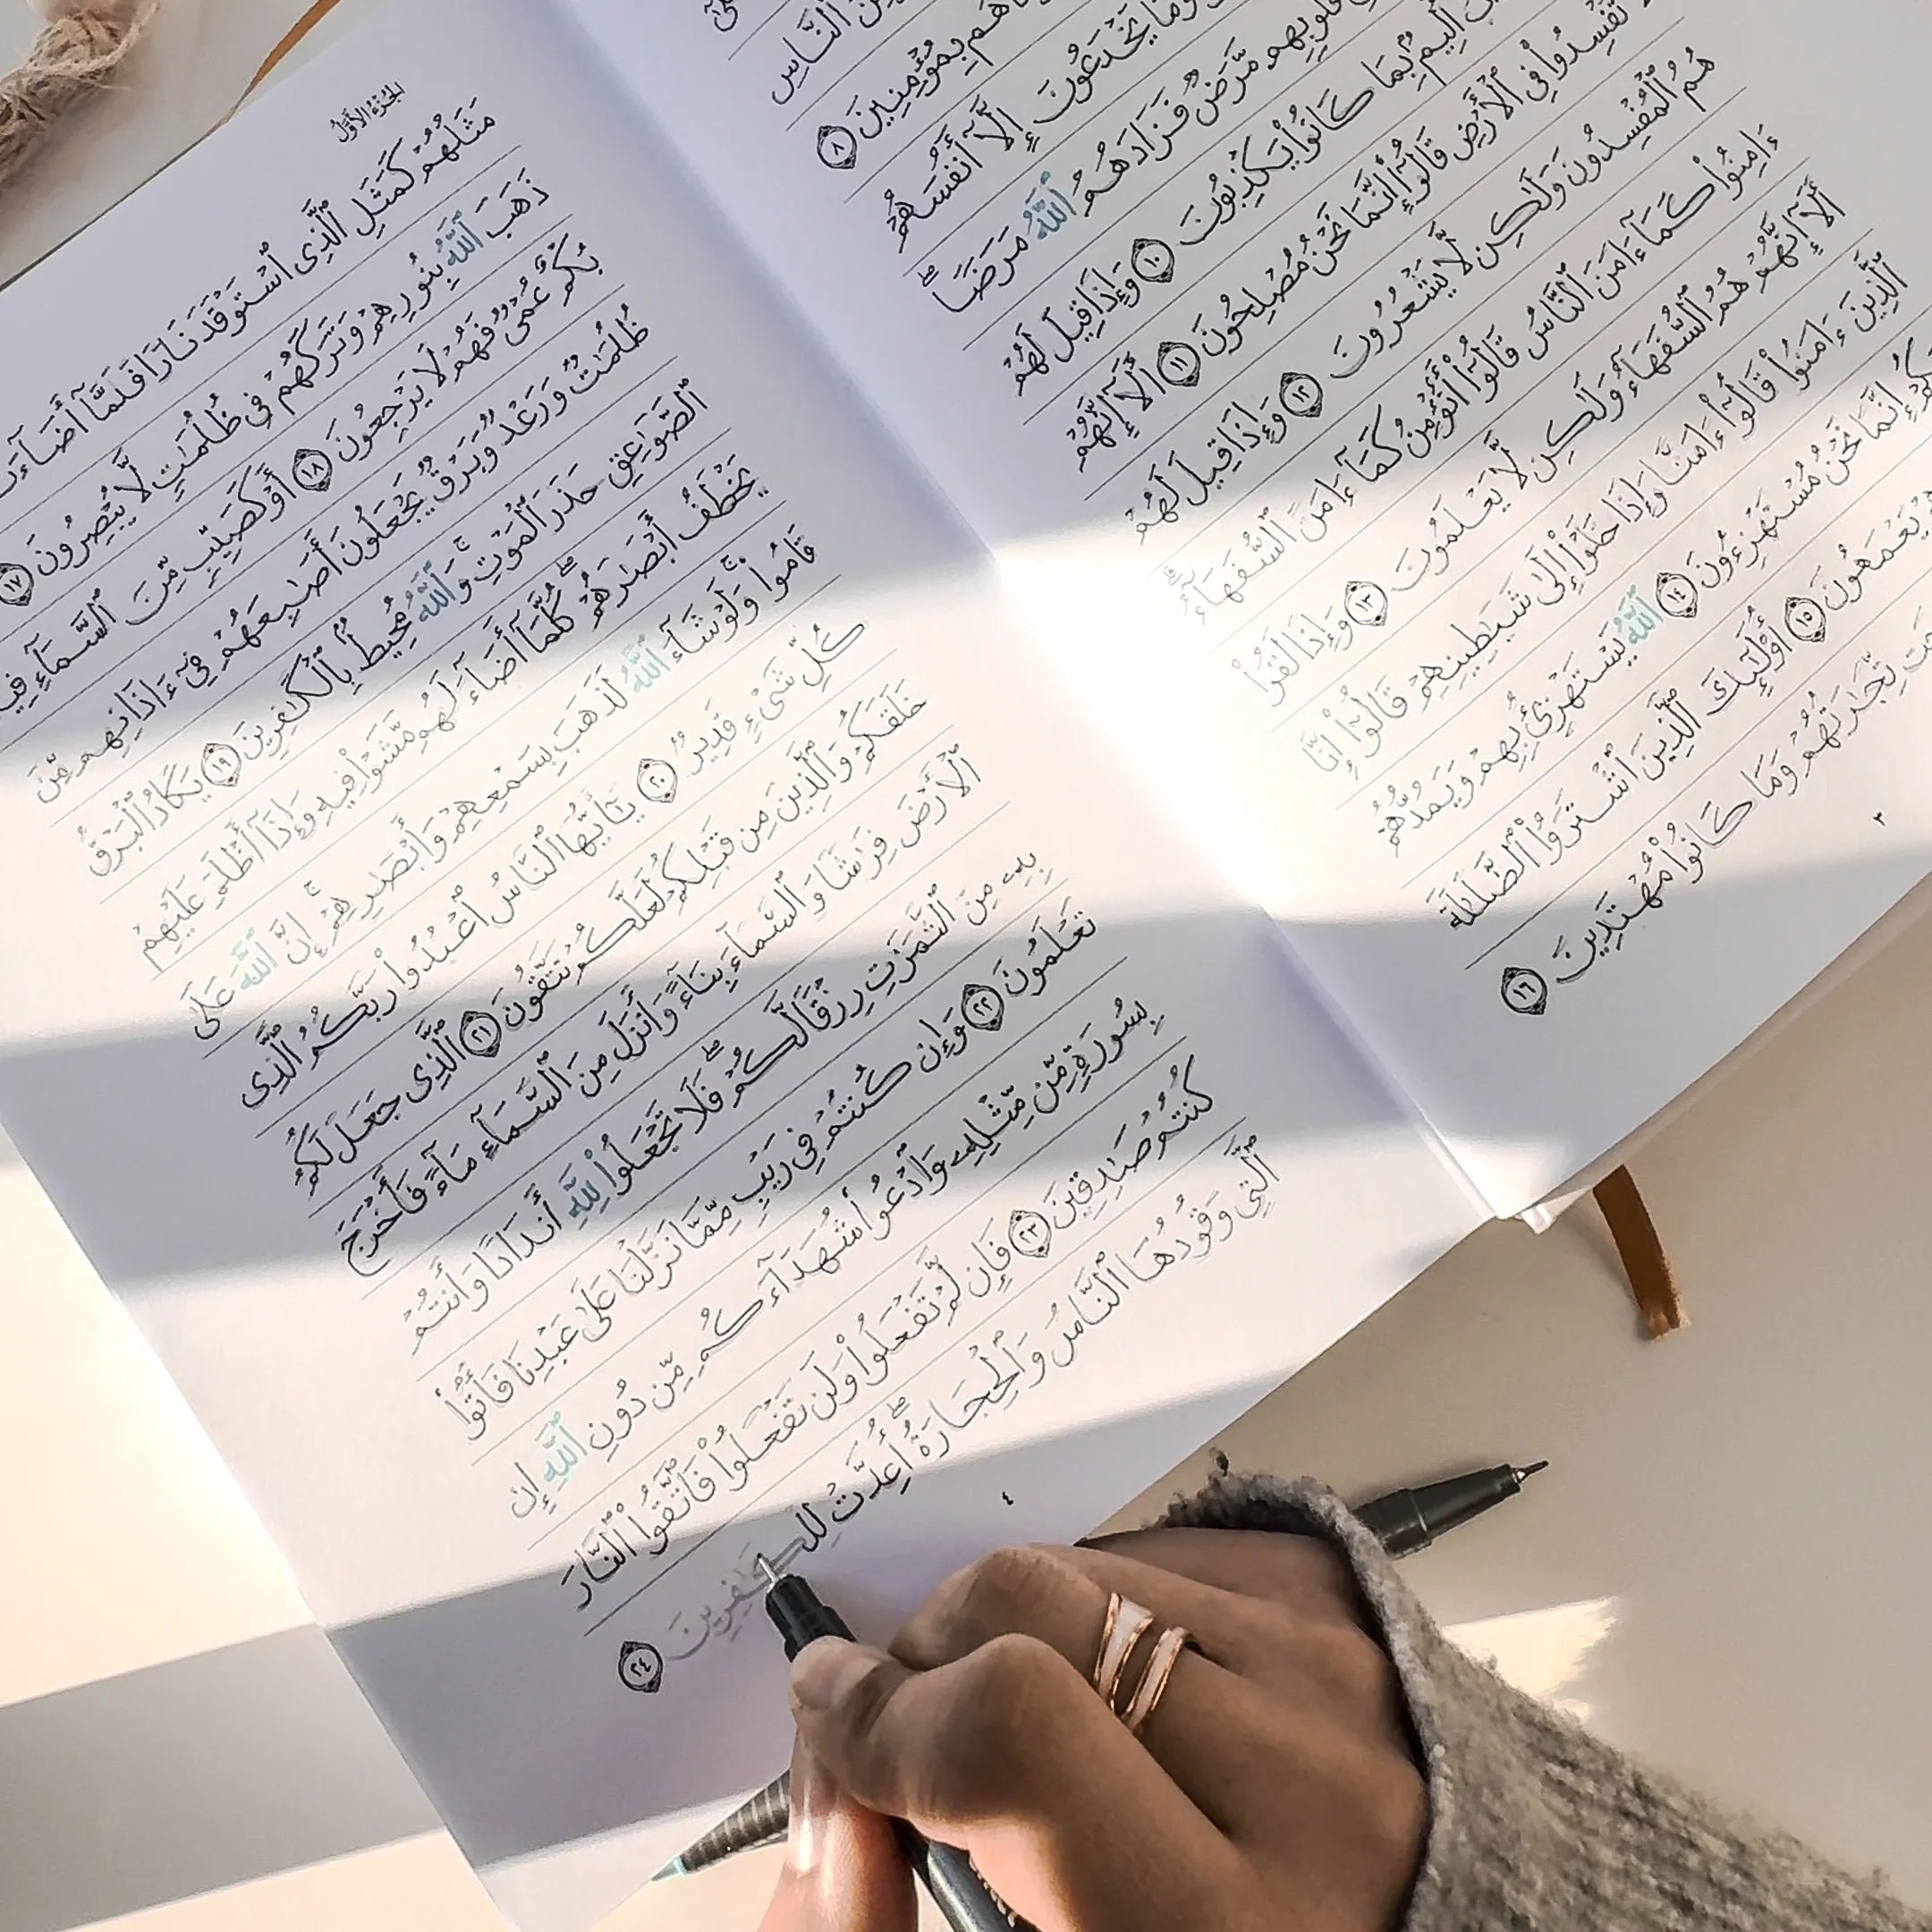 النَّاسِ
هُم بِمُؤْمِنِينَ ٨
وَمَا يَخْدَعُونَ إِلَّآ أَنفُسَهُمْ
قُلُوبِهِم مَّرَضٌ فَزَادَهُمُ ٱللَّهُ مَرَضًا ۖ
أَلِيمٌۢ بِمَا كَانُوا۟ يَكْذِبُونَ ١٠ وَإِذَا قِيلَ لَهُمْ
تُفْسِدُوا۟ فِى ٱلْأَرْضِ قَالُوٓا۟ إِنَّمَا نَحْنُ مُصْلِحُونَ ١١ أَلَآ إِنَّهُمْ
هُمُ ٱلْمُفْسِدُونَ وَلَـٰكِن لَّا يَشْعُرُونَ ١٢ وَإِذَا قِيلَ لَهُمْ
ءَامِنُوا۟ كَمَآ ءَامَنَ ٱلنَّاسُ قَالُوٓا۟ أَنُؤْمِنُ كَمَآ ءَامَنَ ٱلسُّفَهَآءُ ۗ
أَلَآ إِنَّهُمْ هُمُ ٱلسُّفَهَآءُ وَلَـٰكِن لَّا يَعْلَمُونَ ١٣ وَإِذَا لَقُوا۟
ٱلَّذِينَ ءَامَنُوا۟ قَالُوٓا۟ ءَامَنَّا وَإِذَا خَلَوْا۟ إِلَىٰ شَيَـٰطِينِهِمْ قَالُوٓا۟ إِنَّا
إِنَّمَا نَحْنُ مُسْتَهْزِءُونَ ١٤ ٱللَّهُ يَسْتَهْزِئُ بِهِمْ وَيَمُدُّهُمْ
يَعْمَهُونَ ١٥ أُو۟لَـٰٓئِكَ ٱلَّذِينَ ٱشْتَرَوُا۟ ٱلضَّلَـٰلَةَ
تِّجَـٰرَتُهُمْ وَمَا كَانُوا۟ مُهْتَدِينَ ١٦
٣
الجُزْءُ الأَوَّلُ
مَثَلُهُمْ كَمَثَلِ ٱلَّذِى ٱسْتَوْقَدَ نَارًا فَلَمَّآ أَضَآءَتْ
ذَهَبَ ٱللَّهُ بِنُورِهِمْ وَتَرَكَهُمْ فِى ظُلُمَـٰتٍ لَّا يُبْصِرُونَ ١٧
بُكْمٌ عُمْىٌ فَهُمْ لَا يَرْجِعُونَ ١٨ أَوْ كَصَيِّبٍ مِّنَ ٱلسَّمَآءِ فِيهِ
ظُلُمَـٰتٌ وَرَعْدٌ وَبَرْقٌ يَجْعَلُونَ أَصَـٰبِعَهُمْ فِىٓ ءَاذَانِهِم مِّنَ
ٱلصَّوَٰعِقِ حَذَرَ ٱلْمَوْتِ ۚ وَٱللَّهُ مُحِيطٌۢ بِٱلْكَـٰفِرِينَ ١٩ يَكَادُ ٱلْبَرْقُ
يَخْطَفُ أَبْصَـٰرَهُمْ ۖ كُلَّمَآ أَضَآءَ لَهُم مَّشَوْا۟ فِيهِ وَإِذَآ أَظْلَمَ عَلَيْهِمْ
قَامُوا۟ ۚ وَلَوْ شَآءَ ٱللَّهُ لَذَهَبَ بِسَمْعِهِمْ وَأَبْصَـٰرِهِمْ ۚ إِنَّ ٱللَّهَ عَلَىٰ
كُلِّ شَىْءٍ قَدِيرٌ ٢٠ يَـٰٓأَيُّهَا ٱلنَّاسُ ٱعْبُدُوا۟ رَبَّكُمُ ٱلَّذِى
خَلَقَكُمْ وَٱلَّذِينَ مِن قَبْلِكُمْ لَعَلَّكُمْ تَتَّقُونَ ٢١ ٱلَّذِى جَعَلَ لَكُمُ
ٱلْأَرْضَ فِرَٰشًا وَٱلسَّمَآءَ بِنَآءً وَأَنزَلَ مِنَ ٱلسَّمَآءِ مَآءً فَأَخْرَجَ
بِهِۦ مِنَ ٱلثَّمَرَٰتِ رِزْقًا لَّكُمْ ۖ فَلَا تَجْعَلُوا۟ لِلَّهِ أَندَادًا وَأَنتُمْ
تَعْلَمُونَ ٢٢ وَإِن كُنتُمْ فِى رَيْبٍ مِّمَّا نَزَّلْنَا عَلَىٰ عَبْدِنَا فَأْتُوا۟
بِسُورَةٍ مِّن مِّثْلِهِۦ وَٱدْعُوا۟ شُهَدَآءَكُم مِّن دُونِ ٱللَّهِ إِن
كُنتُمْ صَـٰدِقِينَ ٢٣ فَإِن لَّمْ تَفْعَلُوا۟ وَلَن تَفْعَلُوا۟ فَٱتَّقُوا۟ ٱلنَّارَ
ٱلَّتِى وَقُودُهَا ٱلنَّاسُ وَٱلْحِجَارَةُ ۖ أُعِدَّتْ لِلْكَـٰفِرِينَ ٢٤
٤